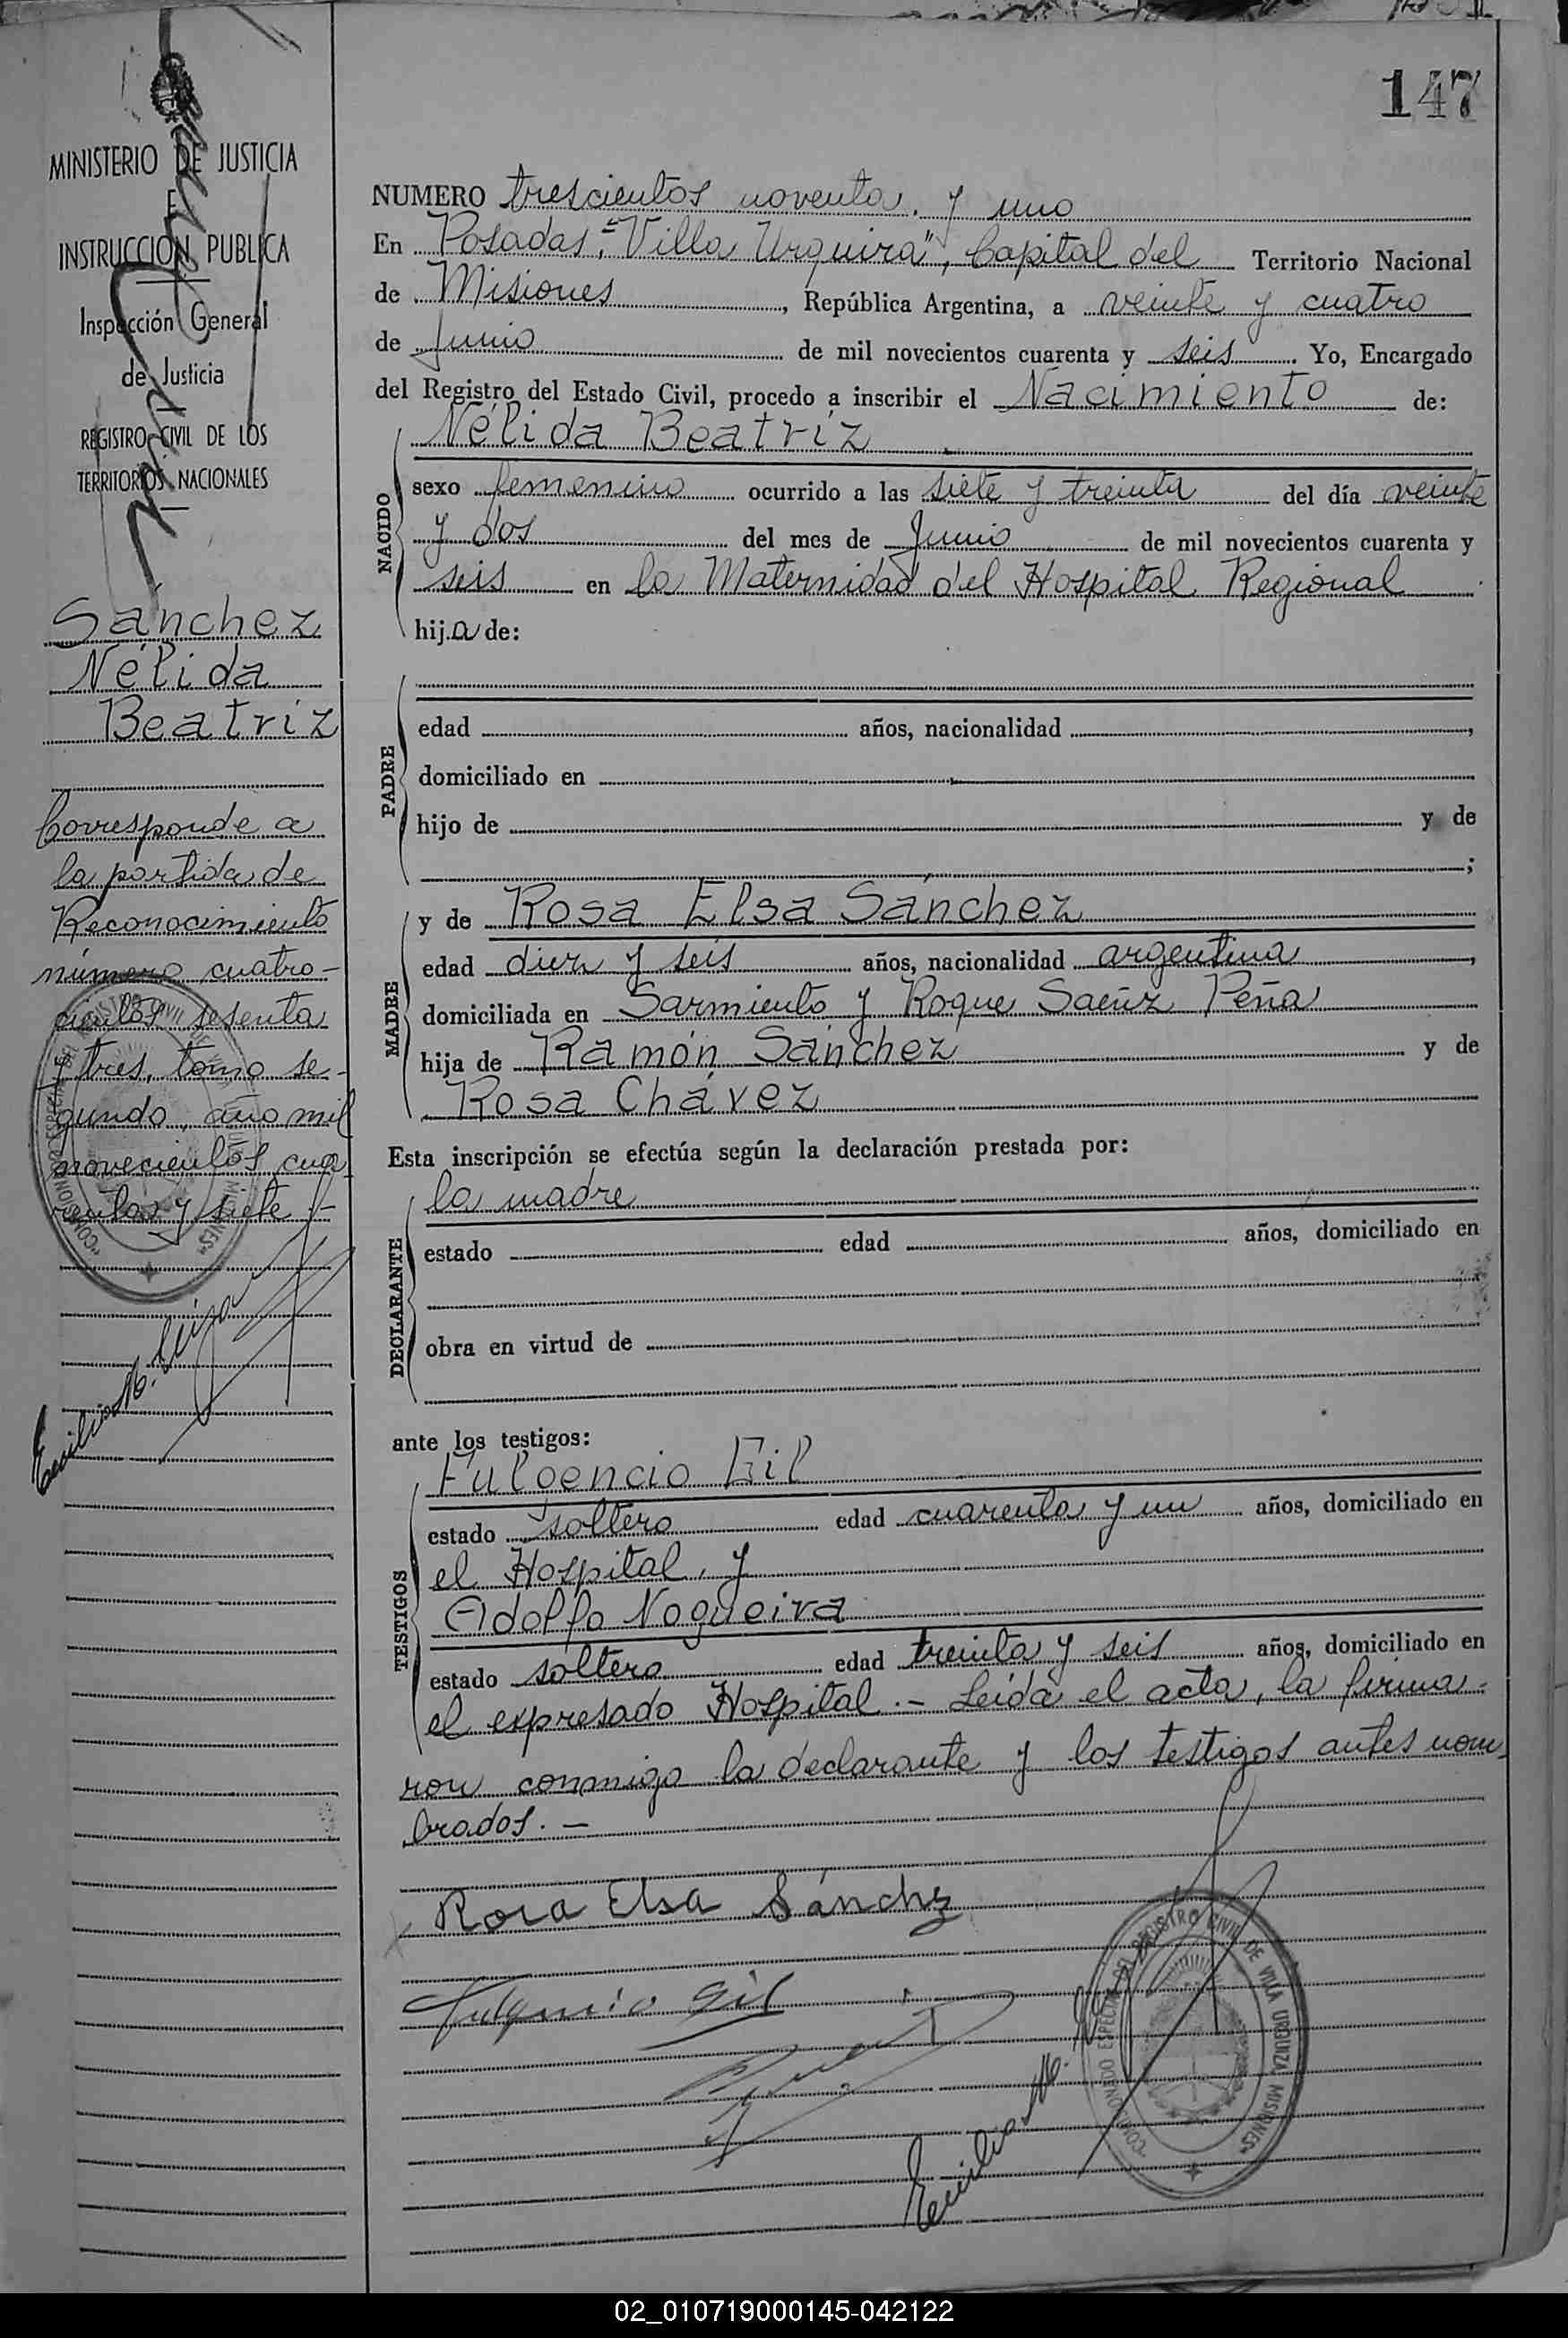 147
MINISTERIO DE JUSTICIA
E
INSTRUCCIÓN PUBLICA
Inspección General
de Justicia
REGISTRO CIVIL DE LOS
TERRITORIOS NACIONALES
Sánchez
Nélida
Beatriz
Corresponde a
la partida de
Reconocimiento
número cuatro-
cientos sesenta
y tres, tomo se-
gundo, año mil
novecientos cua
renta y siete.-
Emilio M.
NUMERO trescientos noventa y uno
En Posadas, "Villa Urquiza", Capital del Territorio Nacional
de Misiones, República Argentina, a veinte y cuatro
de Junio de mil novecientos cuarenta y seis. Yo, Encargado
del Registro del Estado Civil, procedo a inscribir el Nacimiento de:
NACIDO
Nélida Beatriz
sexo femenino ocurrido a las siete y treinta del día veinte
y dos del mes de Junio de mil novecientos cuarenta y
seis en la Maternidad del Hospital Regional
hija de:
PADRE
edad años, nacionalidad ,
domiciliado en
hijo de y de
;
MADRE
y de Rosa Elsa Sánchez
edad diez y seis años, nacionalidad argentina,
domiciliada en Sarmiento y Roque Saeñz Peña
hija de Ramón Sánchez y de
Rosa Chávez
Esta inscripción se efectúa según la declaración prestada por:
DECLARANTE
la madre
estado edad años, domiciliado en
obra en virtud de
ante los testigos:
TESTIGOS
Fulgencio Gil
estado soltero edad cuarenta y un años, domiciliado en
el Hospital, y
Adolfo Nogueira
estado soltero edad treinta y seis años, domiciliado en
el expresado Hospital.- Leída el acta, la firma-
ron conmigo la declarante y los testigos antes nom-
brados.-
Rosa Elsa Sánchz
Fulgencio Gil
Emilio M.
COMISIONADO ESPECIAL DEL REGISTRO CIVIL DE VILLA URQUIZA MISIONES
02_010719000145-042122